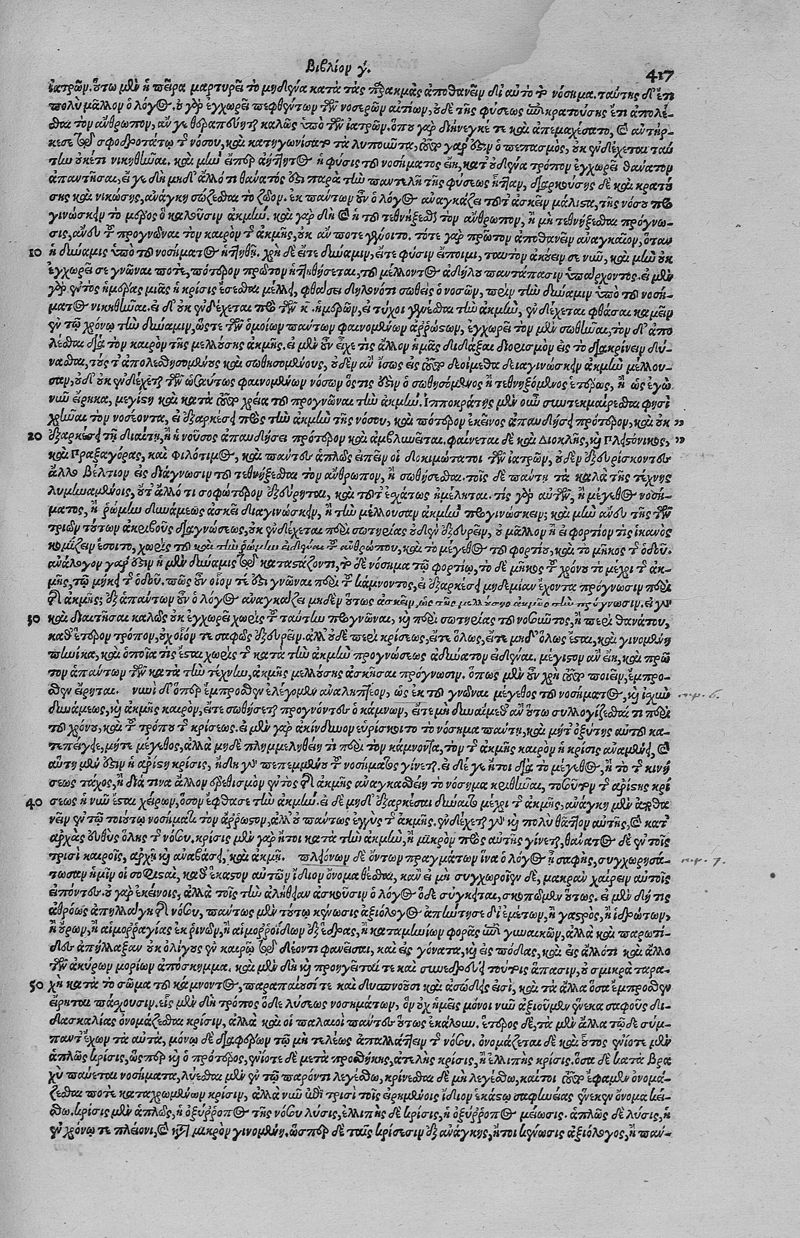 Βιβλίον γ΄. 417
ἰατρῶν. οὕτω μὲν ἡ πεῖρα μαρτυρεῖ τὸ μηδένα κατὰ τὰς παρακμὰς ἀποθανεῖν δι' αὐτὸ τὸ νόσημα. ταύτης δ' ἔτι
πολὺ μᾶλλον ὁ λόγος. οὐ γὰρ ἐγχωρεῖ πεφθέντων τῶν νοσερῶν αἰτίων, οὐδὲ τῆς φύσεως ἐπικρατούσης ἔτι ἀπολέ-
σθαι τὸν ἄνθρωπον, ἄν γε θεραπεύηται καλῶς ὑπὸ τῶν ἰατρῶν. ὅπου γὰρ διήνεγκέ τε καὶ ἀπεμαχέσατο, καὶ αὐτήρ-
κεσε τῷ σφοδροτάτῳ τοῦ νόσου, καὶ κατηγωνίσατο τὰ λυποῦντα, τοῦτο γὰρ ἦν ὁ πεπασμὸς, οὐκ ἐνδέχεται ταύ
την οὐκέτι νικηθῆναι. καὶ μὴν εἴπερ ἀήττητος ἡ φύσις τοῦ νοσήματος εἴη, κατ' οὐδένα τρόπον ἐγχωρεῖ θάνατον
ἀπαντῆσαι, εἴ γε δὴ μηδ' ἄλλό τι θάνατός ἐστι παρὰ τὴν παντελῆ τῆς φύσεως ἧτταν, διαρκούσης δὲ καὶ κρατού
σης καὶ νικώσης, ἀνάγκη σώζεσθαι τὸ ζῶον. ἐκ πάντων οὖν ὁ λόγος ἀναγκάζει τοῦτ' ἀσκεῖν μάλιστα, τῆς νόσου προ
γινώσκειν τὸ μέρος ὃ καλοῦσιν ἀκμήν. καὶ γὰρ δὴ καὶ ἡ τοῦ τεθνήξεσθαι τὸν ἄνθρωπον, ἢ μὴ τεθνήξεσθαι πρόγνω-
σις, ἄνευ τοῦ προγνῶναι τὸν καιρὸν τῆς ἀκμῆς, οὐκ ἄν ποτε γένοιτο. τότε γὰρ πρῶτον ἀποθανεῖν ἀναγκαῖον, ὅταν
10 ἡ δύναμις ὑπὸ τοῦ νοσήματος ἡττηθῇ. χρὴ δὲ εἴτε δύναμιν, εἴτε φύσιν εἴποιμι, ταυτὸν ἀκούειν σε νῦν, καὶ μὴν οὐκ
ἐγχωρεῖ σε γνῶναί ποτε, πότερον πρῶτον ἡττηθήσεται, τοῦ μέλλοντος ἀδήλου παντάπασιν ὑπάρχοντος. εἰ μὲν
γὰρ ἐντὸς ἡμέρας μιᾶς ἡ κρίσις ἔσεσθαι μέλλει, φθάσει δηλονότι σωθεὶς ὁ νοσῶν, πρὶν τὴν δύναμιν ὑπὸ τοῦ νοσή-
ματος νικηθῆναι. εἰ δ' οὐκ ἐνδέχεται πρὸ τῶν κ. ἡμερῶν, εἰ τύχοι γενέσθαι τὴν ἀκμὴν, ἐνδέχεται φθάσαι καμεῖν
ἐν τῷ χρόνῳ τὴν δύναμιν, ὥστε τῶν ὁμοίων πάντων φαινομένων ἀρρώστων, ἐγχωρεῖ τὸν μὲν σωθῆναι, τὸν δ' ἀπο
λέσθαι διὰ τὸν καιρὸν τῆς μελλούσης ἀκμῆς. εἰ μὲν οὖν εἶχέ τις ἄλλον ἡμᾶς διδάξαι διορισμὸν εἰς τὸ διακρίνειν δύ-
νασθαι, τούς τ' ἀπολεσθησομένους καὶ σωθησομένους, οὐδὲν ἂν ἴσως εἰς τοῦτο δεοίμεθα διαγινώσκειν ἀκμὴν μέλλου-
σαν, εἰ δ' οὐκ ἐνδέχεται τῶν ὡσαύτως φαινομένων νόσων ὅστις ἐστὶν ὁ σωθησόμενος ἢ τεθνηξόμενος ἑτέρως, ἢ ὡς ἐγὼ
νῦν εἴρηκα, μεγίστη καὶ κατὰ τοῦτο χρεία τοῦ προγνῶναι τὴν ἀκμήν. Ἱπποκράτης μὲν οὖν συντεκμαίρεσθαι φησὶ
χρῆναι τὸν νοσέοντα, εἰ ἐξαρκέσει πρὸς τὴν ἀκμὴν τῆς νόσου, καὶ πότερον ἐκεῖνος ἀπαυδήσει πρότερον, καὶ οὐκ
20 ἐξαρκέσει τῇ διαίτῃ, ἢ ἡ νοῦσος ἀπαυδήσει πρότερον καὶ ἀμβλυνεῖται. φαίνεται δὲ καὶ Διοκλῆς, καὶ Πλειστόνικος,
καὶ Πραξαγόρας, καὶ Φιλότιμος, καὶ πάντες ἁπλῶς εἰπεῖν οἱ δοκιμώτατοι τῶν ἰατρῶν, οὐδὲν ἐξευρίσκοντες
ἄλλο βέλτιον εἰς διάγνωσιν τοῦ τεθνήξεσθαι τὸν ἄνθρωπον, ἢ σωθήσεσθαι. τοῖς δὲ πάντη τὰ καλὰ τῆς τέχνης
λυμηναμένοις, οὔτ' ἄλλό τι σοφώτερον ἐξεύρηται, καὶ τοῦτ' ἐσχάτως ἠμέληται. τίς γὰρ αὐτῶν, ἢ μέγεθος νοσή-
ματος, ἢ ῥώμην δυνάμεως ἀσκεῖ διαγινώσκειν, ἢ τὴν μέλλουσαν ἀκμὴν προγινώσκειν; καὶ μὴν ἄνευ τῆς τῶν
τριῶν τούτων ἀκριβοῦς διαγνώσεως, οὐκ ἐνδέχεται περὶ σωτηρίας οὐδὲν ἐξευρεῖν, οὐ μᾶλλον ἢ εἰ φορτίον τὶς ἱκανὸς
κομίζειν ἔσοιτο, χωρὶς τοῦ καὶ τὴν ῥώμην εἰδέναι τοῦ ἀνθρώπου, καὶ τὸ μέγεθος τοῦ φορτίου, καὶ τὸ μῆκος τῆς ὁδοῦ.
ἀνάλογον γάρ ἐστιν ἡ μὲν δύναμις τῷ βαστάζοντι, τὸ δὲ νόσημα τῷ φορτίῳ, τὸ δὲ μῆκος τοῦ χρόνου τὸ μέχρι τῆς ἀκ-
μῆς, τῷ μήκει τῆς ὁδοῦ. πῶς ἂν οἷόν τε ἔστι γνῶναι περὶ τοῦ κάμνοντος, εἰ ἐξαρκέσει μηδεμίαν ἔχοντα πρόγνωσιν περὶ
τῆς ἀκμῆς; ἐξ ἁπάντων οὖν ὁ λόγος ἀναγκάζει μηδὲν οὕτως ἀσκεῖν, ὡς τῆς μελλούσης ἀκμῆς τὴν πρόγνωσιν. εἰ γὰρ
30 καὶ διαιτῆσαι καλῶς οὐκ ἐγχωρεῖ χωρὶς τοῦ ταύτην προγνῶναι, καὶ περὶ σωτηρίας τοῦ νοσοῦντος, ἢ περὶ θανάτου,
καθ' ἕτερον τρόπον, οὐχ οἷόν τε σαφῶς ἐξευρεῖν. ἀλλ' οὐδὲ περὶ κρίσεως, εἴτε ὅλως, εἴτε μηδ' ὅλως ἔσται, καὶ γινομένη
πηνίκα, καὶ ὁποία τὶς ἔσται χωρὶς τοῦ κατὰ τὴν ἀκμὴν προγνώσεως ἀδύνατον εἰδέναι. μέγιστον ἂν εἴη, καὶ πρῶ
τον ἁπάντων τῶν κατὰ τὴν τέχνην, ἀκμῆς μελλούσης ἀσκῆσαι πρόγνωσιν. ὅπως μὲν οὖν χρὴ τοῦτο ποιεῖν, ἔμπρο-
σθεν εἴρηται. νυνὶ δ' ὅπερ ἔμπροσθεν ἐλέγομεν ἀναληπτέον, ὡς ἐκ τοῦ γνῶναι μέγεθος τοῦ νοσήματος, καὶ ἰσχὺν
δυνάμεως, καὶ ἀκμῆς καιρὸν, εἴτε σωθήσεται προγνόντες ὁ κάμνων, εἴτε μὴ δυναίμεθ' ἂν οὕτω συλλογίζεσθαί τι περὶ
τοῦ χρόνου, καὶ τοῦ τρόπου τῆς κρίσεως. εἰ μὲν γὰρ ἀκίνδυνον εὑρίσκοιτο τὸ νόσημα πάντη, καὶ μήτ' ὀξύτης αὐτὸ κα-
τεπείγει, μήτε μέγεθος, ἀλλὰ μηδὲ πλημμεληθείη τι περὶ τὸν κάμνοντα, τὸν τῆς ἀκμῆς καιρὸν ἡ κρίσις ἀναμένει, καὶ
αὕτη μὲν ἐστὶν ἡ ἀρίστη κρίσις, ἤδη γὰρ πεπεμμένου τοῦ νοσήματος γίνεται. εἰ δέ γε ἤτοι διὰ τὸ μέγεθος, ἢ τὸ τῆς κινή
σεως τάχος, ἢ διά τινα ἄλλον ἐρεθισμὸν ἐντὸς τῆς ἀκμῆς ἀναγκασθείη τὸ νόσημα κριθῆναι, τοσοῦτον τῆς ἀρίστης κρί
40 σεως ἡ νῦν ἔσται χείρων, ὅσον ἔφθασε τὴν ἀκμήν. εἰ δὲ μηδ' ἐξαρκέσαι δύναιτο μέχρι τῆς ἀκμῆς, ἀνάγκη μὲν ἀποθα
νεῖν ἐν τῷ τοιούτῳ νοσήματι τὸν ἄρρωστον, ἀλλ' οὐ πάντως ἐγγὺς τῆς ἀκμῆς. ἐνδέχεται γὰρ καὶ πολὺ θᾶττον αὐτῆς, καὶ κατ'
ἀρχὰς εὐθὺς ὅλης τῆς νόσου. κρίσις μὲν γὰρ ἤτοι κατὰ τὴν ἀκμὴν, ἢ μικρὸν πρὸ αὐτῆς γίνεται, θάνατος δὲ ἐν τοῖς
τρισὶ καιροῖς, ἀρχῇ καὶ ἀναβάσει, καὶ ἀκμῇ. πλεόνων δὲ ὄντων πραγμάτων ἵνα ὁ λόγος ᾖ σαφὴς, συγχωρησά-
τωσαν ἡμῖν οἱ σοφισταὶ, καθ' ἕκαστον αὐτῶν ἴδιον ὄνομα θέσθαι, κἂν εἰ μὴ συγχωροῖεν δὲ, μακρὰν χαίρειν αὐτοῖς
εἰπόντες. οὐ γὰρ ἐκείνοις, ἀλλὰ τοῖς τὴν ἀλήθειαν ἀσκοῦσιν ὁ λόγος ὅδε σύγκειται, σκοπῶμεν οὕτως. εἰ μὲν δή τις
ἀθρόως ἀπηλλάγη τῆς νόσου, πάντως μὲν τούτῳ κένωσις ἀξιόλογος ἀπήντησε δι' ἐμέτων, ἢ γαστρὸς, ἢ ἱδρώτων,
ἢ οὔρων, ἢ αἱμορραγίας ἐκ ῥινῶν, ἢ αἱμορροΐδων ἐξ ἕδρας, ἢ καταμηνίων φορᾶς ἐπὶ γυναικῶν, ἀλλὰ καὶ παρωτί-
δες ἀπήλλαξαν οὐκ ὀλίγους ἐν καιρῷ τῷ δέοντι φανεῖσαι, καὶ εἰς γόνατα, καὶ εἰς πόδας, καὶ εἰς ἄλλό τι καὶ ἄλλο
τῶν ἀκύρων μορίων ἀπόσκημμα. καὶ μὲν δὴ καὶ προηγεῖταί τε καὶ συνεδρεύει τούτοις ἅπασιν, οὐ σμικρὰ ταρα-
50 χὴ κατὰ τὸ σῶμα τοῦ κάμνοντος, παραπαίουσί τε καὶ δυσπνοοῦσι καὶ ἀσώδεις εἰσὶ, καὶ τὰ ἄλλα ὅσα ἔμπροσθεν
εἴρηται πάσχουσιν. εἷς μὲν δὴ τρόπος ὅδε λύσεως νοσημάτων, ὃν οὐχ ἡμεῖς μόνοι νῦν ἀξιοῦμεν ἕνεκα σαφοῦς δι-
δασκαλίας ὀνομάζεσθαι κρίσιν, ἀλλὰ καὶ οἱ παλαιοὶ πάντες οὕτως ἐκάλουν. ἕτερος δὲ, τὰ μὲν ἄλλα τῷδε σύμ-
παντ' ἔχων τὰ αὐτὰ, μόνῳ δὲ διαφέρων τῷ μὴ τελέως ἀπαλλάττειν τῆς νόσου. ὀνομάζεται δὲ καὶ οὗτος ἐνίοτε μὲν
ἁπλῶς κρίσις, ὥσπερ καὶ ὁ πρότερος, ἐνίοτε δὲ μετὰ προσθήκης, ἀτελὴς κρίσις, ἢ ἐλλιπὴς κρίσις. ὅσα δὲ κατὰ βρα
χὺ παύεται νοσήματα, λύεσθαι μὲν ἐν τῷ παρόντι λεγέσθω, κρίνεσθαι δὲ μὴ λεγέσθω, καίτοι τοῦτο ἔφαμεν ὀνομά-
ζεσθαί ποτε καταχρωμένων κρίσιν, ἀλλὰ νῦν ἐπὶ τρισὶ τοῖς εἰρημένοις ἴδιον ἑκάστῳ σαφηνείας ἕνεκεν ὄνομα κεί-
σθω. κρίσις μὲν ἁπλῶς, ἡ ὀξύρροπος τῆς νόσου λύσις, ἐλλιπὴς δὲ κρίσις, ἡ ὀξύρροπος μείωσις. ἁπλῶς δὲ λύσις, ἡ
ἐν χρόνῳ τε πλείονι, καὶ κατὰ μικρὸν γινομένη. ὥσπερ δὲ ταῖς κρίσεσιν ἐξ ἀνάγκης, ἤτοι κένωσις ἀξιόλογος, ἢ παν-